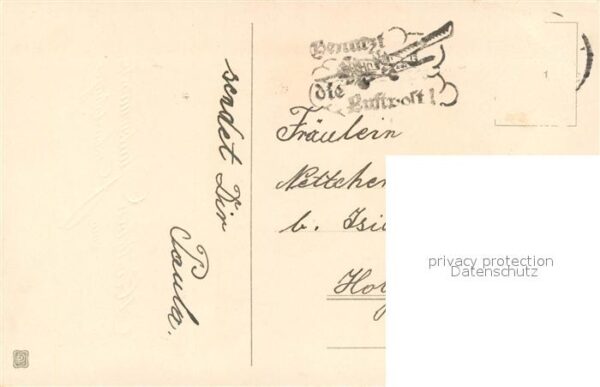 Benutzt
die Luftpost!
1
sendet Dir
Paula.
Fräulein
Nettchen
b. Isi
Ho
privacy protection
Datenschutz